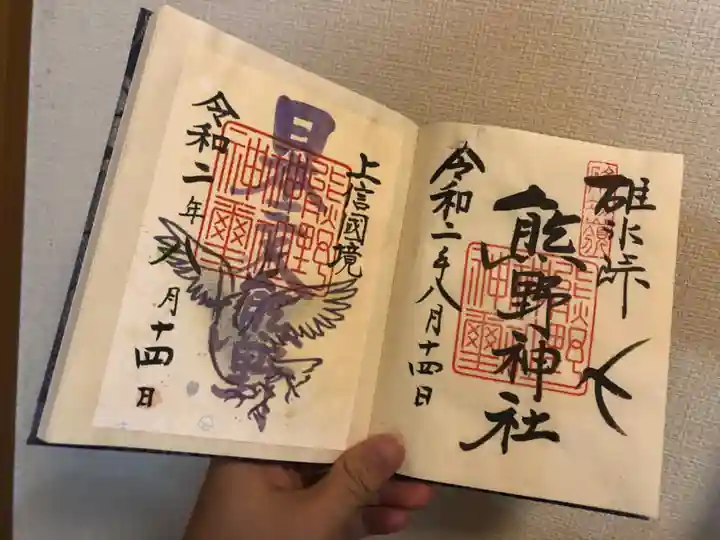 碓氷峠
熊野神社
熊野
神璽
令和二年八月十四日
上信國境
日本三大熊野
熊野
神璽
令和二年八月十四日